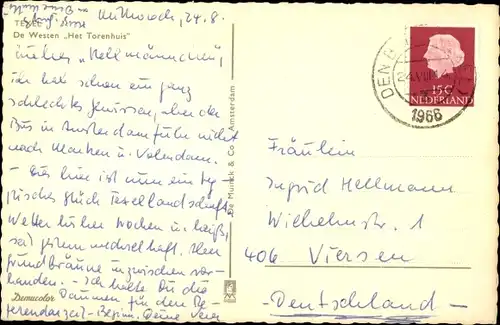 Mittwoch, 24.8.
TEXEL
De Westen „Het Torenhuis"
Liebes „Hellmännchen",
ich hab schon ein ganz
schlechtes Gewissen, aber der
Bus in Amsterdam fuhr nicht
nach Marken u. Volendam.
– Das hier ist nun ein
Stück Texellandschaft.
Wetter bisher trocken u. heiß,
seit gestern wechselhaft.
Grundbräune inzwischen vor-
handen. – Ich halte Dir die
Daumen für den Re-
ferendarzeit-Beginn. Deine
Demucolor
De Muinck & Co. Amsterdam
DEN
24.VIII
1966
15c
NEDERLAND
Fräulein
Ingrid Hellmann
Wilhelmstr. 1
406 Viersen
– Deutschland –